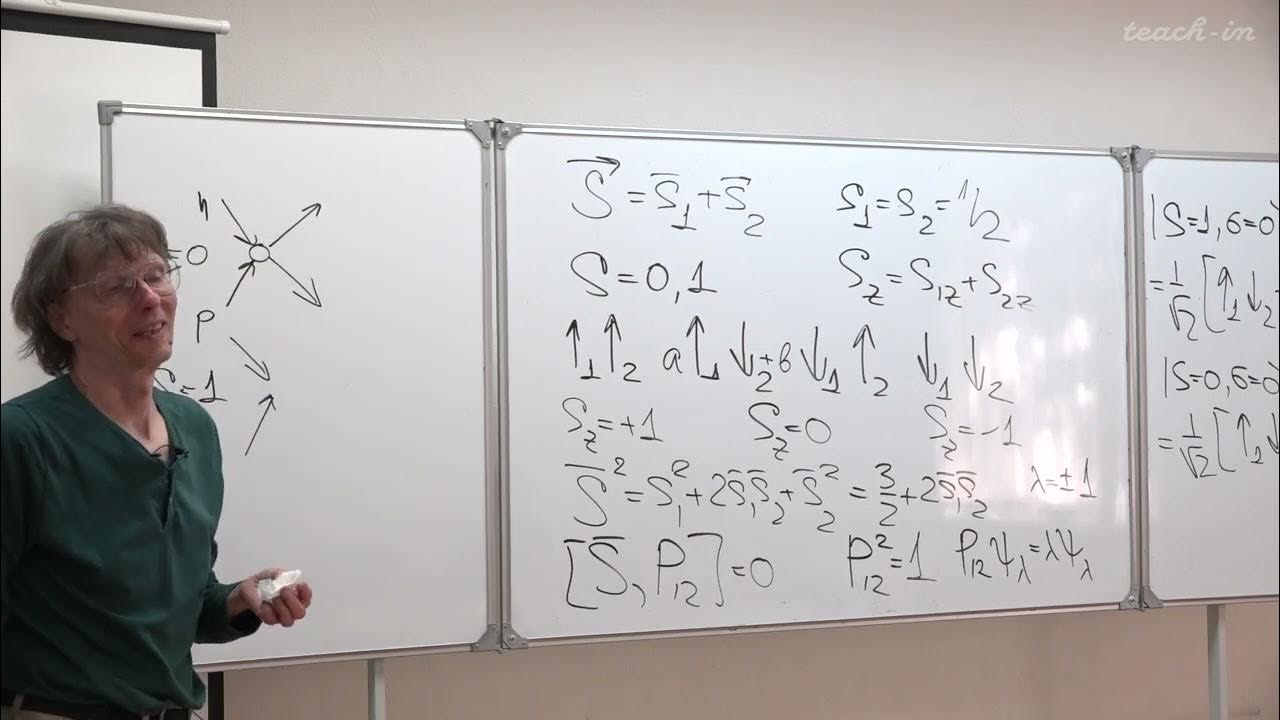 teach-in
n
=0
p
S=1
S⃗ = S̄₁ + S̄₂
s₁ = s₂ = 1/2
S = 0, 1
S_z = S_{1z} + S_{2z}
↑₁ ↑₂ a↑₁ ↓₂ + b↓₁ ↑₂ ↓₁ ↓₂
S_z = +1 S_z = 0 S_z = -1
S̄² = S̄₁² + 2S̄₁S̄₂ + S̄₂² = 3/2 + 2S̄₁S̄₂ λ = ±1
[S̄, P₁₂] = 0 P₁₂² = 1 P₁₂ψ_λ = λψ_λ
|S=1, б=0⟩
= 1/√2 [↑₁ ↓₂
|S=0, б=0⟩
= 1/√2 [↑₁ ↓